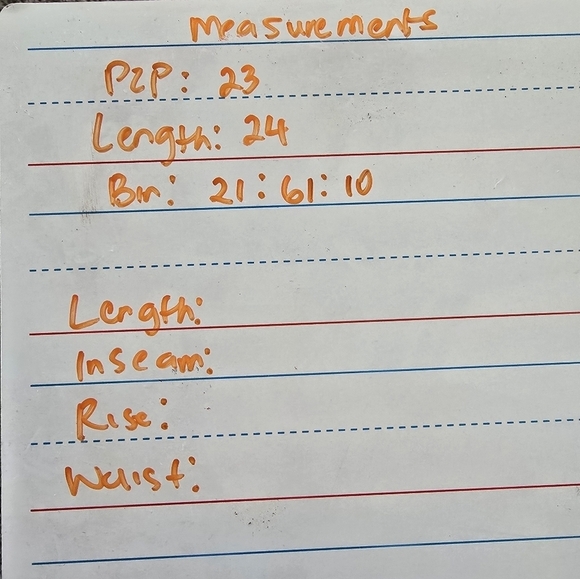 Measurements
P2P: 23
Length: 24
Bin: 21:61:10
Length:
Inseam:
Rise:
Waist: